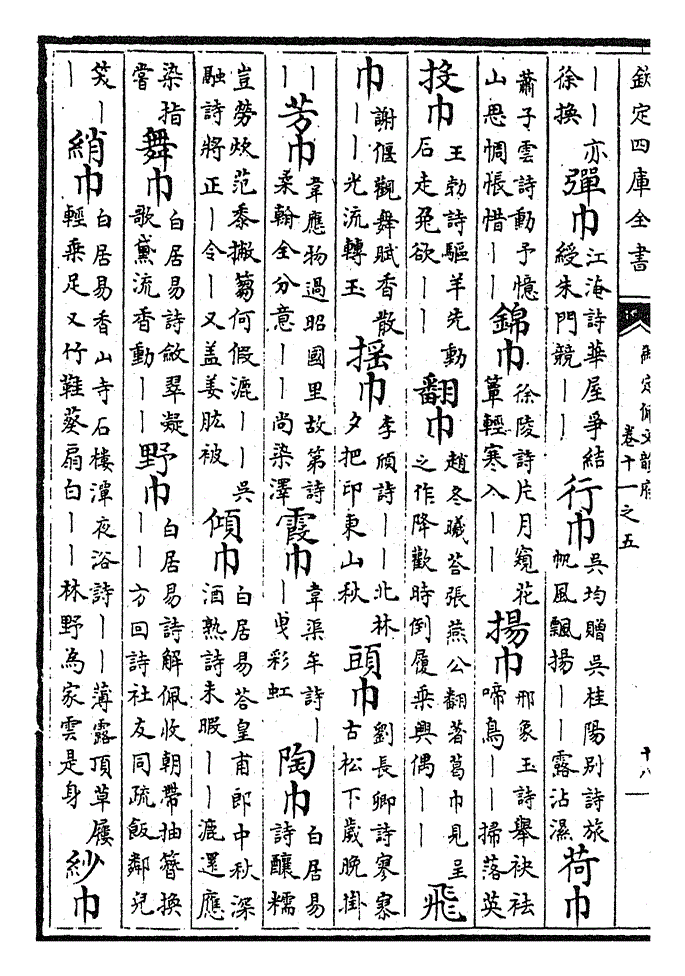 欽定四庫全書 御定佩文韻府 卷十一之五 十八
丨丨亦
徐換
彈巾
江淹詩華屋爭結
綬朱門競丨丨
行巾
吳均贈吳桂陽別詩旅
帆風飄揚丨丨露沾濕
荷巾
蕭子雲詩動予憶
山思惆悵惜丨丨
錦巾
徐陵詩片月窺花
簟輕寒入丨丨
揚巾
邢象玉詩舉袂袪
啼鳥丨丨掃落英
投巾
王勃詩驅羊先動
石走兎欲丨丨
翻巾
趙冬曦荅張燕公翻著葛巾見呈
之作降歡時倒履乗興偶丨丨
飛
巾
謝偃觀舞賦香散
丨丨光流轉玉
揺巾
李頎詩丨丨北林
夕把印東山秋
頭巾
劉長卿詩寥寥
古松下歲晚掛
丨
丨
芳巾
韋應物過昭國里故第詩
柔翰全分意丨丨尚染澤
霞巾
韋渠牟詩丨
丨曵彩虹
陶巾
白居易
詩釀糯
豈勞炊范黍撇蒭何假漉丨丨吳
融詩將正丨令丨又盖姜肱被
傾巾
白居易荅皇甫郎中秋深
酒熟詩未暇丨丨漉還應
染指
嘗
舞巾
白居易詩斂翠凝
歌黛流香動丨丨
野巾
白居易詩解佩收朝帶抽簪換
丨丨方回詩社友同疏飯鄰兒
笑丨
丨
綃巾
白居易香山寺石樓潭夜浴詩丨丨薄露頂草屨
輕乗足又竹鞋葵扇白丨丨林野為家雲是身
紗巾